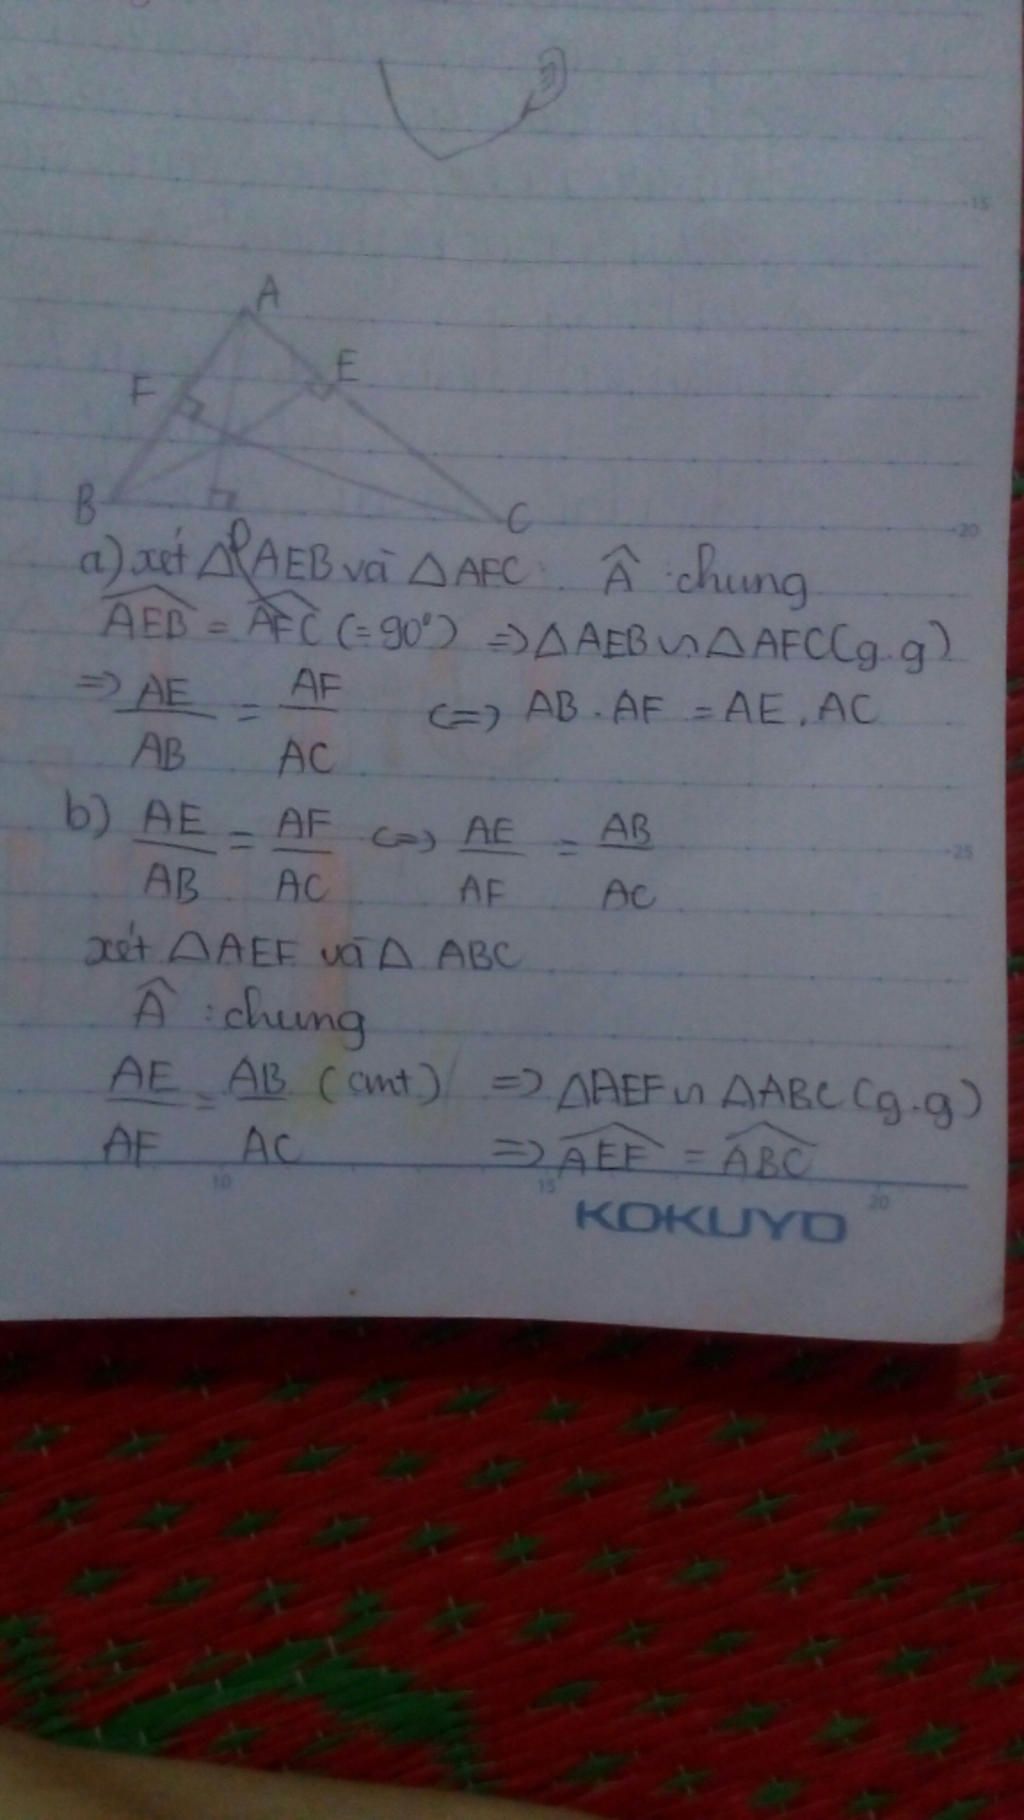 15
A
E
F
B
C
20
a) xét △AEB và △AFC: Â : chung
AEB = AFC (=90°) => △AEB ∽ △AFC (g.g)
=> AE/AB = AF/AC <=> AB . AF = AE . AC
b) AE/AB = AF/AC <=> AE/AF = AB/AC
25
xét △AEF và △ ABC
Â : chung
AE/AF = AB/AC (cmt) => △AEF ∽ △ABC (g.g)
=> AEF = ABC
10 15 20
KOKUYO